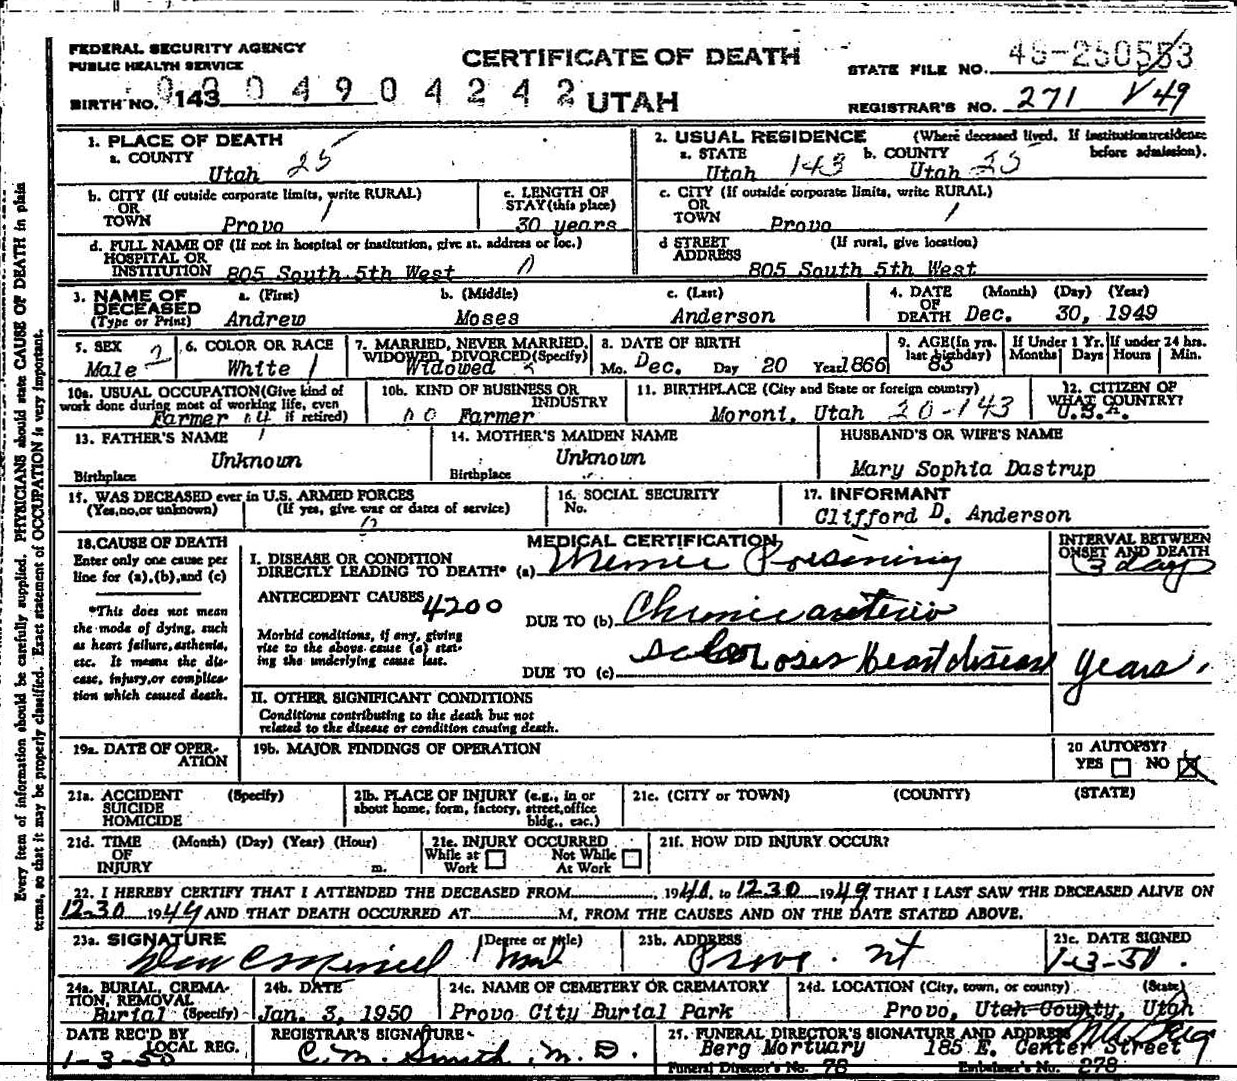 FEDERAL SECURITY AGENCY
PUBLIC HEALTH SERVICE
CERTIFICATE OF DEATH
STATE FILE NO.
BIRTH NO. 143 04904242 UTAH
REGISTRAR'S NO. 271 V49
1. PLACE OF DEATH
a. COUNTY
Utah 25
2. USUAL RESIDENCE (Where deceased lived. If institution: residence before admission).
a. STATE Utah 143 b. COUNTY Utah 25
b. CITY (If outside corporate limits, write RURAL)
OR
TOWN Provo
c. LENGTH OF STAY (this place)
30 years
c. CITY (If outside corporate limits, write RURAL)
OR
TOWN Provo
d. FULL NAME OF (If not in hospital or institution, give st. address or loc.)
HOSPITAL OR
INSTITUTION 805 South 5th West
d STREET ADDRESS (If rural, give location)
805 South 5th West
3. NAME OF DECEASED (Type or Print)
a. (First) b. (Middle) c. (Last)
Andrew Moses Anderson
4. DATE OF DEATH (Month) (Day) (Year)
Dec. 30, 1949
5. SEX
Male 2
6. COLOR OR RACE
White 1
7. MARRIED, NEVER MARRIED, WIDOWED, DIVORCED (Specify)
Widowed
8. DATE OF BIRTH
Mo. Dec. Day 20 Year 1866
9. AGE (In yrs. last birthday)
83
If Under 1 Yr. Months Days
If under 24 hrs. Hours Min.
10a. USUAL OCCUPATION (Give kind of work done during most of working life, even if retired)
Farmer
10b. KIND OF BUSINESS OR INDUSTRY
Farmer
11. BIRTHPLACE (City and State or foreign country)
Moroni, Utah 20-143
12. CITIZEN OF WHAT COUNTRY?
U.S.A.
13. FATHER'S NAME
Unknown
Birthplace
14. MOTHER'S MAIDEN NAME
Unknown
Birthplace
HUSBAND'S OR WIFE'S NAME
Mary Sophia Dastrup
15. WAS DECEASED ever in U.S. ARMED FORCES
(Yes, no, or unknown) (If yes, give war or dates of service)
16. SOCIAL SECURITY
No.
17. INFORMANT
Clifford D. Anderson
18. CAUSE OF DEATH
Enter only one cause per line for (a), (b), and (c)
*This does not mean the mode of dying, such as heart failure, asthenia, etc. It means the disease, injury, or complication which caused death.
MEDICAL CERTIFICATION
I. DISEASE OR CONDITION
DIRECTLY LEADING TO DEATH* (a) Uremic Poisoning
ANTECEDENT CAUSES 4200
Morbid conditions, if any, giving rise to the above cause (a) stating the underlying cause last.
DUE TO (b) Chronic arterio
DUE TO (c) scleroses Heart disease
II. OTHER SIGNIFICANT CONDITIONS
Conditions contributing to the death but not related to the disease or condition causing death.
INTERVAL BETWEEN ONSET AND DEATH
3 days
years
19a. DATE OF OPERATION
19b. MAJOR FINDINGS OF OPERATION
20 AUTOPSY?
YES NO
21a. ACCIDENT (Specify)
SUICIDE
HOMICIDE
21b. PLACE OF INJURY (e.g., in or about home, form, factory, street, office bldg., eac.)
21c. (CITY or TOWN) (COUNTY) (STATE)
21d. TIME OF INJURY (Month) (Day) (Year) (Hour) m.
21e. INJURY OCCURRED
While at Work Not While At Work
21f. HOW DID INJURY OCCUR?
22. I HEREBY CERTIFY THAT I ATTENDED THE DECEASED FROM , 19 to 12-30 1949 THAT I LAST SAW THE DECEASED ALIVE ON
12-30 1949 AND THAT DEATH OCCURRED AT M, FROM THE CAUSES AND ON THE DATE STATED ABOVE.
23a. SIGNATURE (Degree or title)
23b. ADDRESS
Provo. ut
23c. DATE SIGNED
1-3-50.
24a. BURIAL, CREMATION, REMOVAL
Burial (Specify)
24b. DATE
Jan. 3, 1950
24c. NAME OF CEMETERY OR CREMATORY
Provo City Burial Park
24d. LOCATION (City, town, or county) (State)
Provo, Utah County, Utah
DATE REC'D BY LOCAL REG.
1-3-50
REGISTRAR'S SIGNATURE
C. M. Smith M. D.
25. FUNERAL DIRECTOR'S SIGNATURE AND ADDRESS
Berg Mortuary 185 E. Center Street
Funeral Director's No. 78 Embalmer's No. 278
Every item of information should be carefully supplied. PHYSICIANS should state CAUSE OF DEATH in plain
terms, so that it may be properly classified. Exact statement of OCCUPATION is very important.